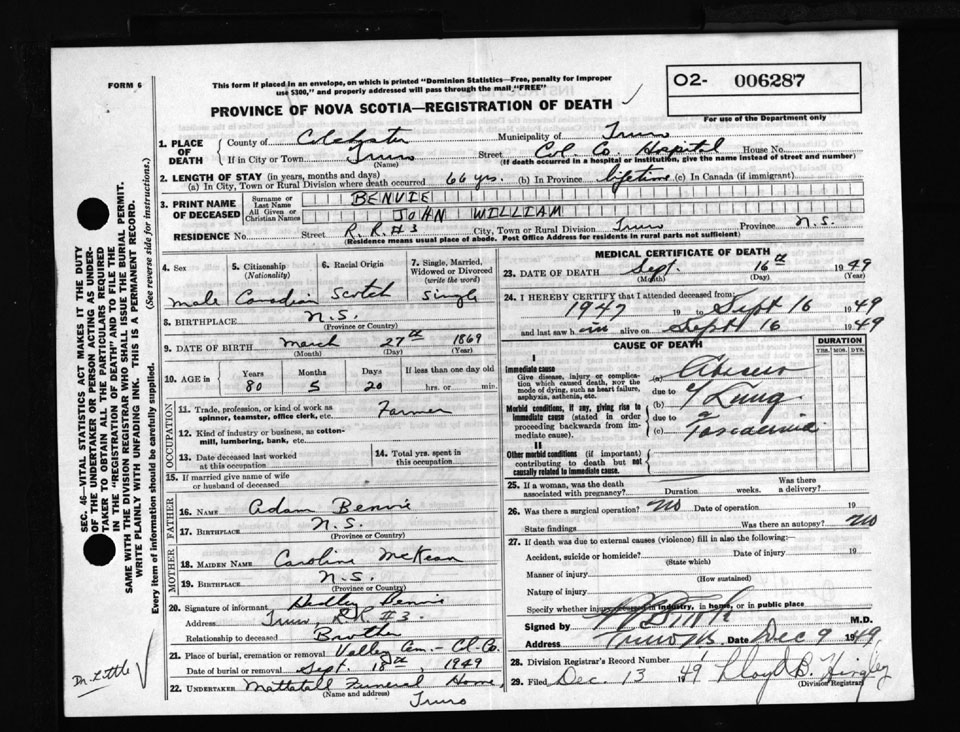 FORM 6
This form if placed in an envelope, on which is printed "Dominion Statistics—Free, penalty for improper
use $300," and properly addressed will pass through the mail "FREE"
PROVINCE OF NOVA SCOTIA—REGISTRATION OF DEATH
O2- 006287
For use of the Department only
SEC. 46—VITAL STATISTICS ACT MAKES IT THE DUTY
OF THE UNDERTAKER OR PERSON ACTING AS UNDER-
TAKER TO OBTAIN ALL THE PARTICULARS REQUIRED
IN THE "REGISTRATION OF DEATH" AND TO FILE THE
SAME WITH THE DIVISION REGISTRAR WHO SHALL ISSUE THE BURIAL PERMIT.
WRITE PLAINLY WITH UNFADING INK. THIS IS A PERMANENT RECORD.
(See reverse side for instructions.)
Every item of information should be carefully supplied.
1. PLACE OF DEATH
County of Colchester Municipality of Truro
If in City or Town Truro Street Col. Co. Hospital House No.
(Name) (If death occurred in a hospital or institution, give the name instead of street and number)
2. LENGTH OF STAY (in years, months and days)
(a) In City, Town or Rural Division where death occurred 66 yrs. (b) In Province lifetime (c) In Canada (if immigrant)
3. PRINT NAME OF DECEASED
Surname or Last Name BENVIE
All Given or Christian Names JOHN WILLIAM
RESIDENCE No. Street R.R.#3 City, Town or Rural Division Truro Province N.S.
(Residence means usual place of abode. Post Office Address for residents in rural parts not sufficient)
4. Sex male
5. Citizenship (Nationality) Canadian
6. Racial Origin Scotch
7. Single, Married, Widowed or Divorced (write the word) Single
8. BIRTHPLACE N.S.
(Province or Country)
9. DATE OF BIRTH March 27th 1869
(Month) (Day) (Year)
10. AGE in Years Months Days If less than one day old
80 5 20 hrs. or min.
OCCUPATION
11. Trade, profession, or kind of work as spinner, teamster, office clerk, etc. Farmer
12. Kind of industry or business, as cotton-mill, lumbering, bank, etc.
13. Date deceased last worked at this occupation
14. Total yrs. spent in this occupation
15. If married give name of wife or husband of deceased
FATHER
16. NAME Adam Benvie
17. BIRTHPLACE N.S.
(Province or Country)
MOTHER
18. MAIDEN NAME Caroline McKean
19. BIRTHPLACE N.S.
(Province or Country)
20. Signature of informant Benvie
Address Truro, R.R.#3.
Relationship to deceased Brother
21. Place of burial, cremation or removal Valley Cem. - Cl. Co.
Date of burial or removal Sept. 18th, 1949
22. UNDERTAKER Mattatall Funeral Home,
(Name and address) Truro
Dr. Little
MEDICAL CERTIFICATE OF DEATH
23. DATE OF DEATH Sept. 16th 1949
(Month) (Day) (Year)
24. I HEREBY CERTIFY that I attended deceased from:
1947 19 to Sept 16 1949
and last saw him alive on Sept 16 1949
CAUSE OF DEATH
DURATION
YRS. MOS. DYS.
I
Immediate cause
Give disease, injury or complication which caused death, NOT the mode of dying, such as heart failure, asphyxia, asthenia, etc.
(a) Abscess
due to
Morbid conditions, if any, giving rise to immediate cause (stated in order proceeding backwards from immediate cause).
(b) of Lung
due to
(c) Toxaemia
II
Other morbid conditions (if important) contributing to death but not causally related to immediate cause.
25. If a woman, was the death associated with pregnancy? Duration weeks. Was there a delivery?
26. Was there a surgical operation? No Date of operation 19
State findings Was there an autopsy? No
27. If death was due to external causes (violence) fill in also the following:—
Accident, suicide or homicide? Date of injury 19
(State which)
Manner of injury
(How sustained)
Nature of injury
Specify whether injury occurred in industry, in home, or in public place
Signed by M.D.
Address Truro NS Date Dec 9 1949
28. Division Registrar's Record Number
29. Filed Dec. 13 1949 Lloyd B. Hingley
(Division Registrar)